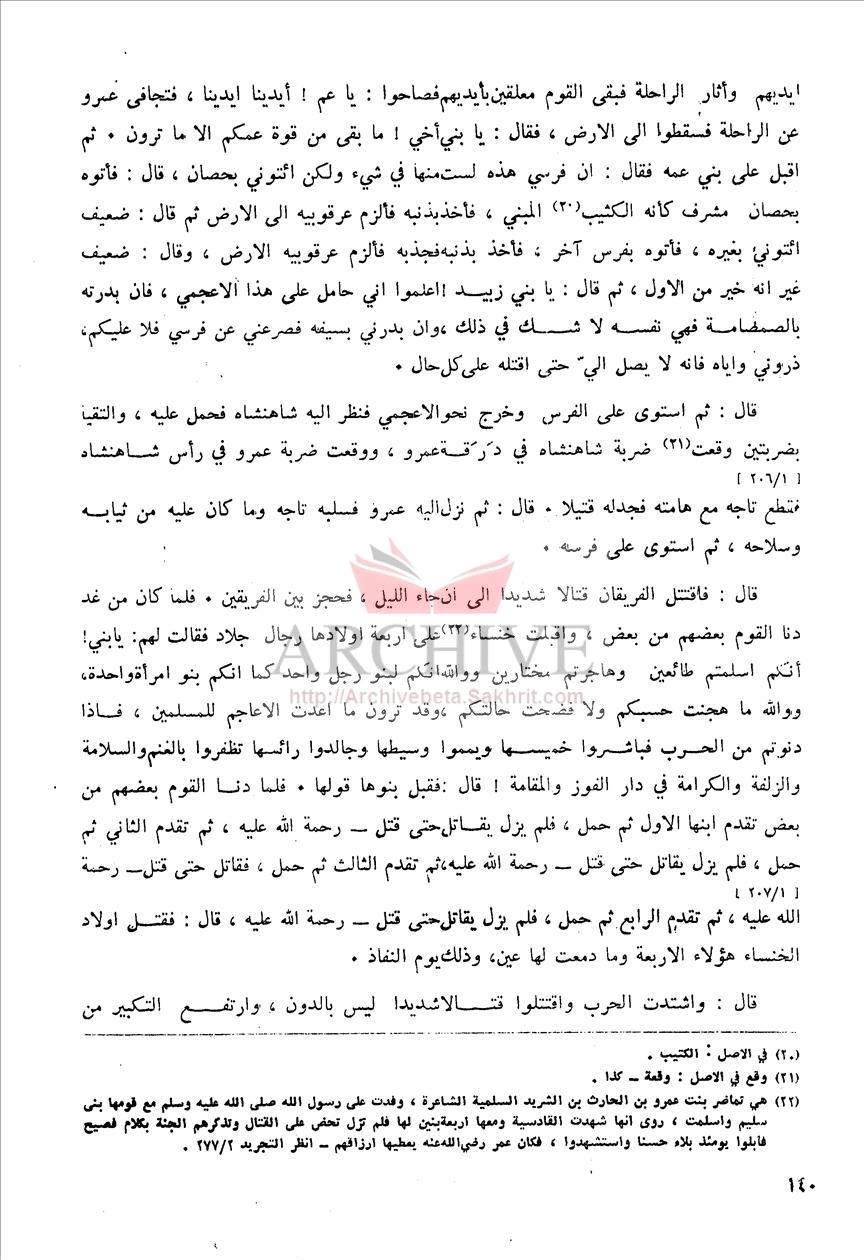 ايديهم وأثار الراحلة فبقى القوم معلقين بأيديهم فصاحوا : يا عم ! أيدينا ايدينا ، فتجافى عمرو
عن الراحلة فسقطوا الى الارض ، فقال : يا بني أخي ! ما بقى من قوة عمكم الا ما ترون ٠ ثم
اقبل على بني عمه فقال : ان فرسي هذه لست منها في شيء ولكن ائتوني بحصان ، قال : فأتوه
بحصان مشرف كأنه الكثيب(٢٠) المبني ، فأخذ بذنبه فألزم عرقوبيه الى الارض ثم قال : ضعيف
ائتوني بغيره ، فأتوه بفرس آخر ، فأخذ بذنبه فجذبه فألزم عرقوبيه الارض ، وقال : ضعيف
غير انه خير من الاول ، ثم قال : يا بني زبيـــد !اعلموا اني حامل على هذا الاعجمي ، فان بدرته
بالصمصامـة فهي نفســه لا شــــك في ذلك ،وان بدرني بسيفه فصرعني عن فرسي فلا عليكم،
ذروني واياه فانه لا يصل اليّ حتى اقتله على كل حال ٠
قال : ثم استوى على الفرس وخرج نحو الاعجمي فنظر اليه شاهنشاه فحمل عليه ، والتقيا
بضربتين وقعت(٢١) ضربة شاهنشاه في دَرَقــة عمرو ، ووقعت ضربة عمرو في رأس شــاهنشاه
[ ٢٠٦/١ ]
فقطع تاجه مع هامته فجدله قتيلا ٠ قال : ثم نزل اليه عمرو فسلبه تاجه وما كان عليه من ثيابــه
وسلاحه ، ثم استوى على فرسه ٠
قال : فاقتتل الفريقان قتالا شديدا الى ان جاء الليل ، فحجز بين الفريقين ٠ فلما كان من غد
دنا القوم بعضهم من بعض ، واقبلت خنساء(٢٢) على اربعة اولادها رجال جلاد فقالت لهم: يابني!
أنكم اسلمتم طائعين وهاجرتم مختارين ووالله انكم لبنو رجل واحد كما انكم بنو امرأة واحدة،
ووالله ما هجنت حسبكم ولا فضحت حالتكم ،وقد ترون ما اعدت الاعاجم للمسلمين ، فــاذا
دنوتم من الحــرب فباشــروا خميســها ويمموا وسيطها وجالدوا رائسها تظفروا بالغنم والسلامة
والزلفة والكرامة في دار الفوز والمقامة ! قال :فقبل بنوها قولها ٠ فلما دنــا القوم بعضهم من
بعض تقدم ابنها الاول ثم حمل ، فلم يزل يقــاتل حتى قتل ــ رحمة الله عليه ، ثم تقدم الثاني ثم
حمل ، فلم يزل يقاتل حتى قتل ــ رحمة الله عليه،ثم تقدم الثالث ثم حمل ، فقاتل حتى قتل ــ رحمة
[ ٢٠٧/١ ]
الله عليه ، ثم تقدم الرابع ثم حمل ، فلم يزل يقاتل حتى قتل ــ رحمة الله عليه ، قال : فقتــل اولاد
الخنساء هؤلاء الاربعة وما دمعت لها عين، وذلك يوم النفاذ ٠
قال : واشتدت الحرب واقتتلوا قتــالا شديدا ليس بالدون ، وارتفــــع التكبير من
(٢٠) في الاصل : الكتيب .
(٢١) وقع في الاصل : وقعة ــ كذا .
(٢٢) هي تماضر بنت عمرو بن الحارث بن الشريد السلمية الشاعرة ، وفدت على رسول الله صلى الله عليه وسلم مع قومها بني
سليم واسلمت ، روى انها شهدت القادسية ومعها اربعة بنين لها فلم تزل تحض على القتال وتذكرهم الجنة بكلام فصيح
فابلوا يومئذ بلاء حسنا واستشهدوا ، فكان عمر رضي الله عنه يعطيها ارزاقهم ــ انظر التجريد ٢٧٧/٢ .
١٤٠
ARCHIVE
http://Archivebeta.Sakhrit.com